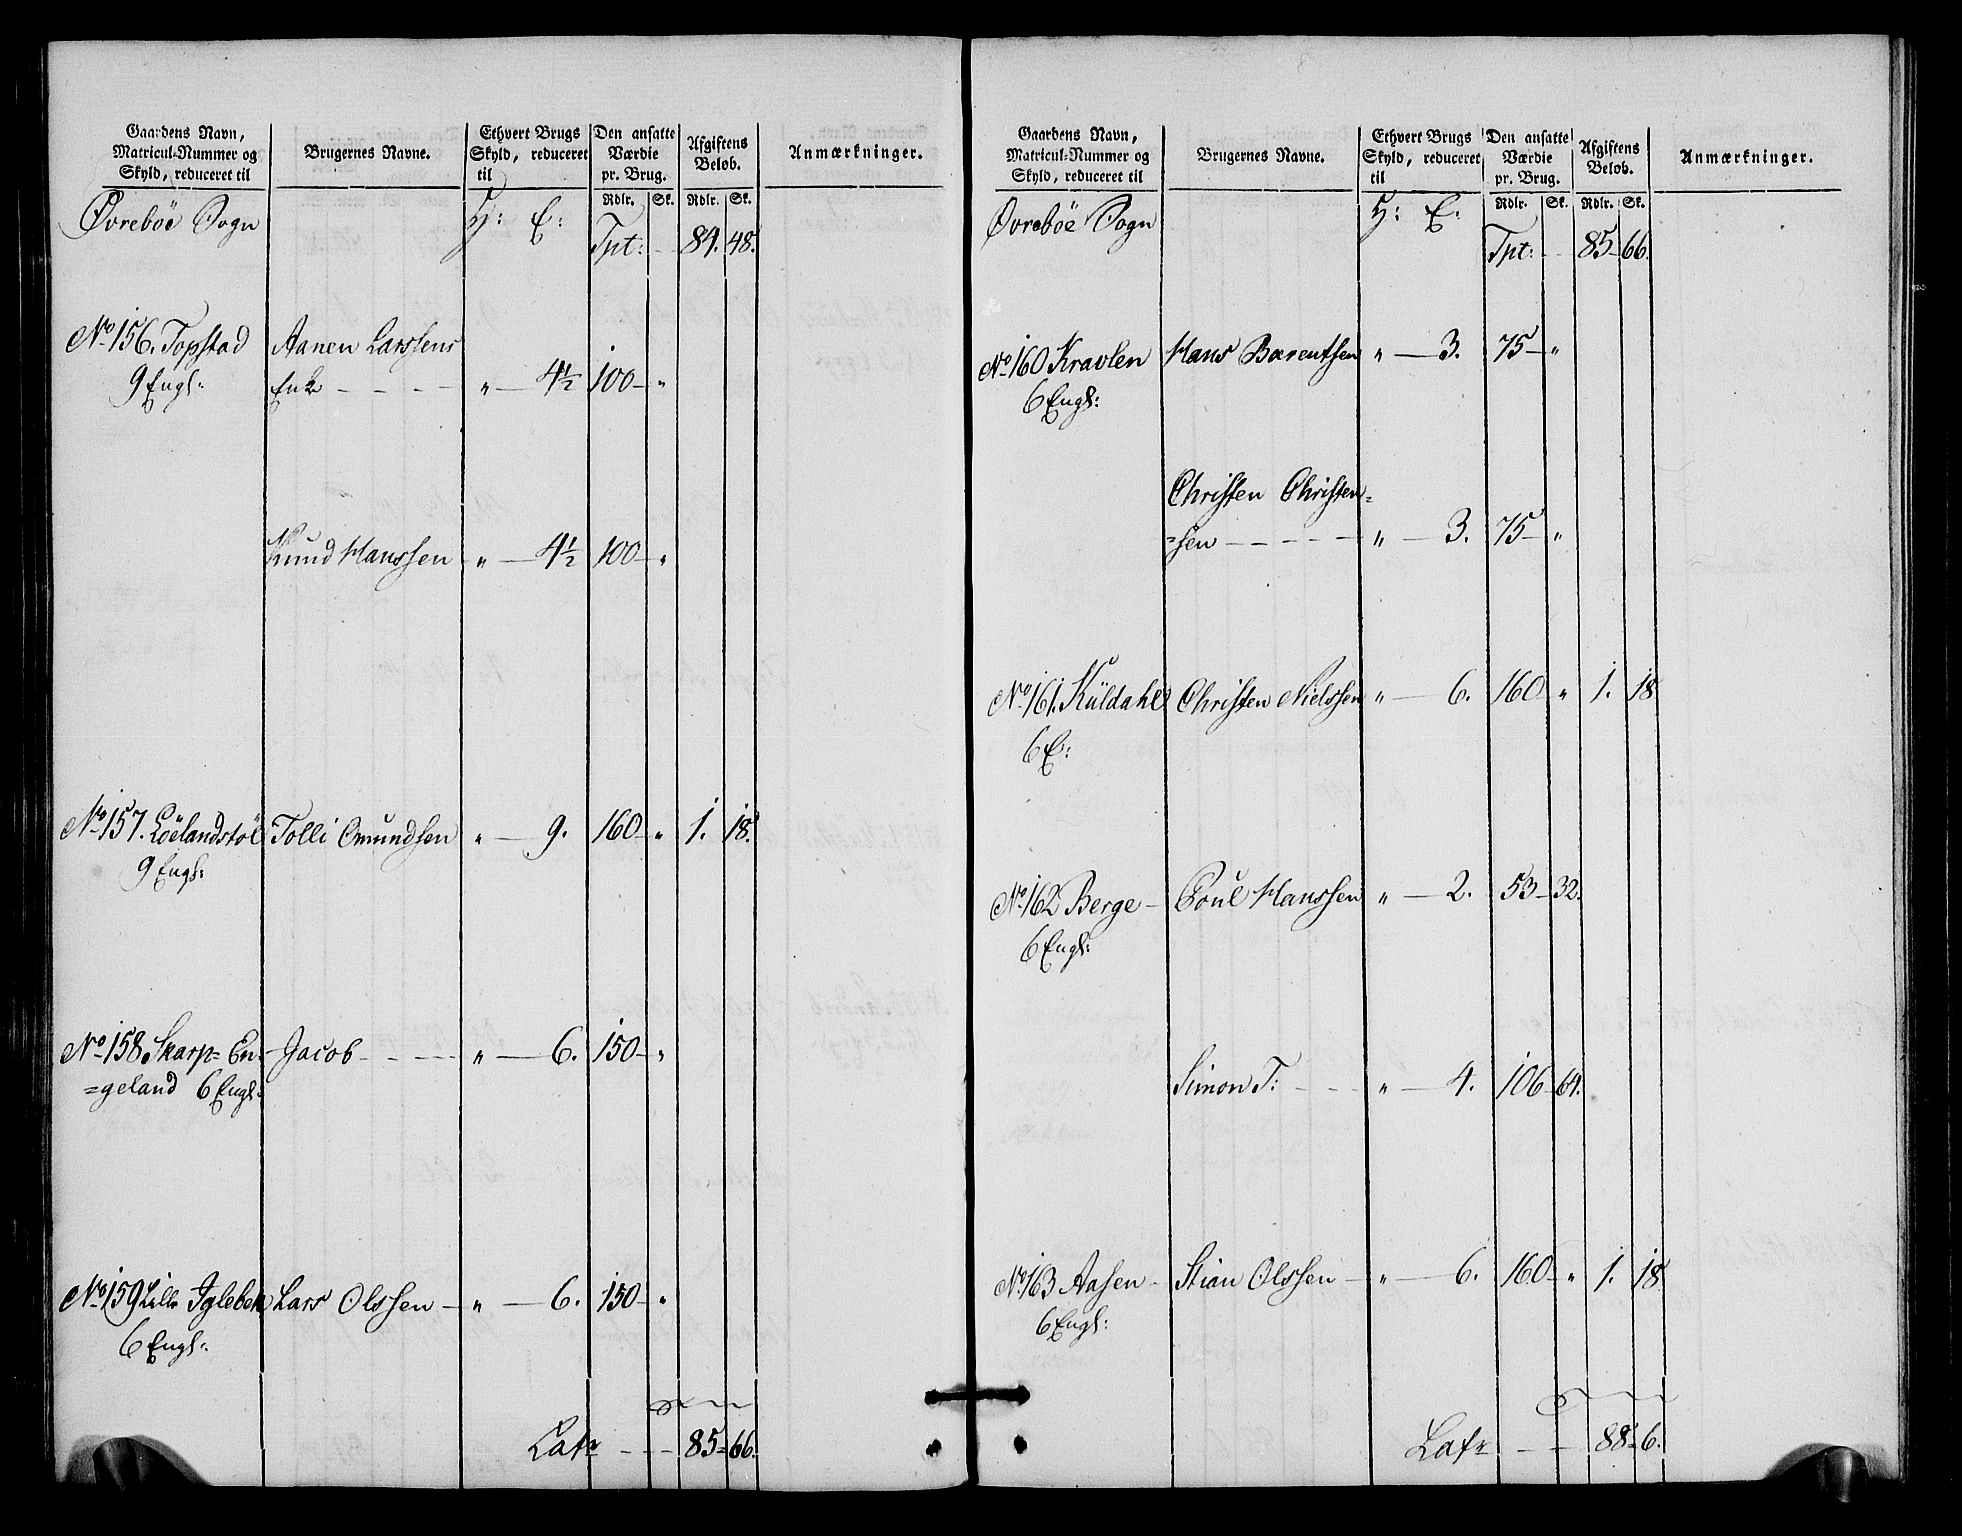 Gaardens Navn,
Matricul-Nummer og
Skyld, reduceret til
Brugernes Navne.
Ethvert Brugs
Skyld, reduceret
til
Den ansatte
Værdie
pr. Brug.
Afgiftens
Beløb.
Anmærkninger.
Rdlr. Sk. Rdlr. Sk.
Øvrebøe Sogn H: E:
Tpt: - - 84. 48.
No 156. Topstad Aanen Larssens
9 Engl: Enke - - - - " — 4½ 100 — "
Knud Hanssen " — 4½ 100 — "
No 157. Löelandstöl Tolli Omundsen " — 9. 160 — " 1. 18.
9 Engl:
No 158 Skarp= En- Jacob - - - - " — 6. 150 — "
=geland 6 Engl:
No 159 Lille Iglebek Lars Olssen — " — 6. 150 — "
6 Engl:
Latr - - - 85 = 66.
Gaardens Navn,
Matricul-Nummer og
Skyld, reduceret til
Brugernes Navne.
Ethvert Brugs
Skyld, reduceret
til
Den ansatte
Værdie
pr. Brug.
Afgiftens
Beløb.
Anmærkninger.
Rdlr. Sk. Rdlr. Sk.
Øvrebøe Sogn H: E:
Tpt: - - 85 — 66.
No 160 Kravlen Hans Barentsen " — 3. 75 — "
6 Engl:
Christen Christen=
=sen - - - - - " — 3. 75 — "
No 161. Küldahl Christen Nielssen " — 6. 160 " 1. 18
6 E:
No 162 Berge — Poul Hanssen " — 2. 53 — 32.
6 Engl:
Simon T: - - - " — 4. 106 — 64.
No 163 Aasen — Stian Olssen — " — 6. 160 — " 1. 18
6 Engl:
Latr - - 88 = 6.